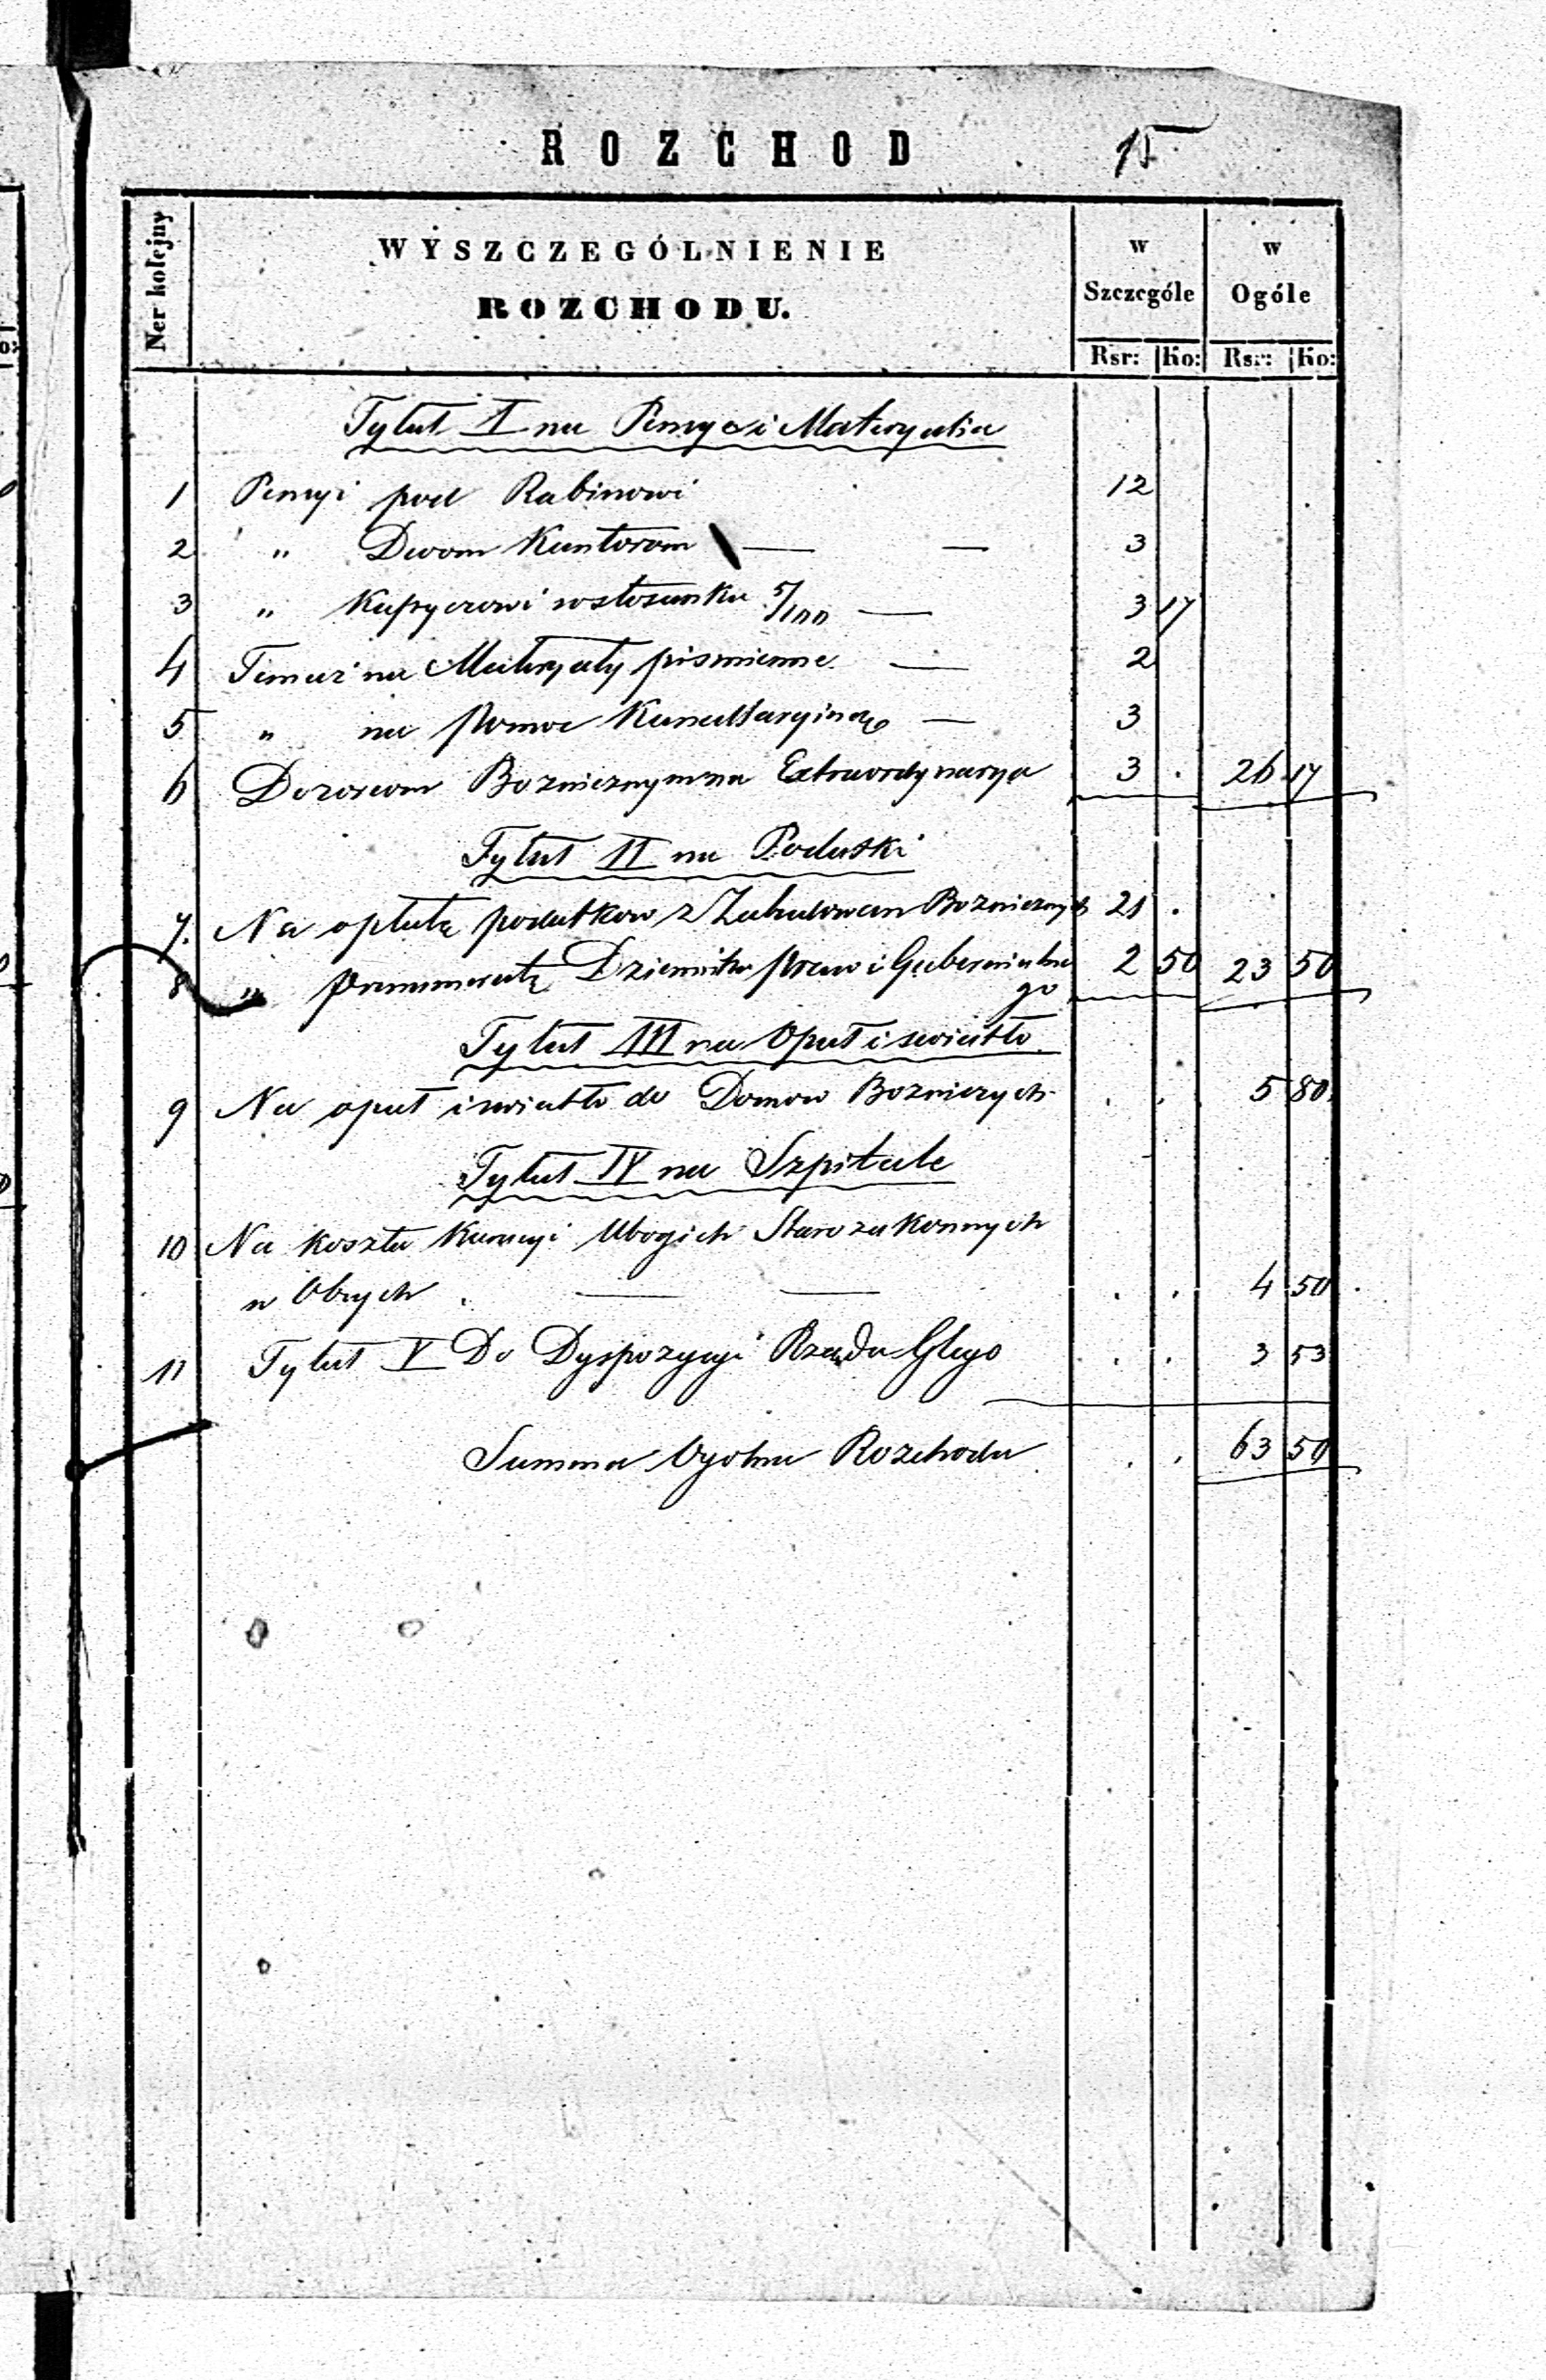 ROZCHOD 15
Ner kolejny
WYSZCZEGÓLNIENIE
ROZCHODU.
w Szczególe
w Ogóle
Rsr: Ko: Rsr: Ko:
Tytuł I na Pensye i Materyalia
1 Pensyi pod Rabinowi 12
2 " Dwom Kantorom — — 3
3 " Kasyerowi w stosunku 5/100 — 3 17
4 Temuż na Materyały piśmienne — 2
5 " na pomoc Kancellaryjną — 3
6 Dozorcom Bożnicznym na Extraordynarya 3 . 26 17
Tytuł II na Podatki
7. Na opłatę podatkow z Zabudowan Bożnicznych 21 .
8 " prenumeratę Dziennika praw i Gubernialne 2 50 23 50
go
Tytuł III na Opał i swiatło
9 Na opał i swiatło do Domow Bożniczych . . 5 80
Tytuł IV na Szpitale
10 Na koszta Kuracyi Ubogich Starozakonnych
w Obcych . — — . . 4 50
11 Tytuł V Do Dyspozycyi Rządu Glngo . . 3 53
Summa Ogolna Rozchodu . . 63 50